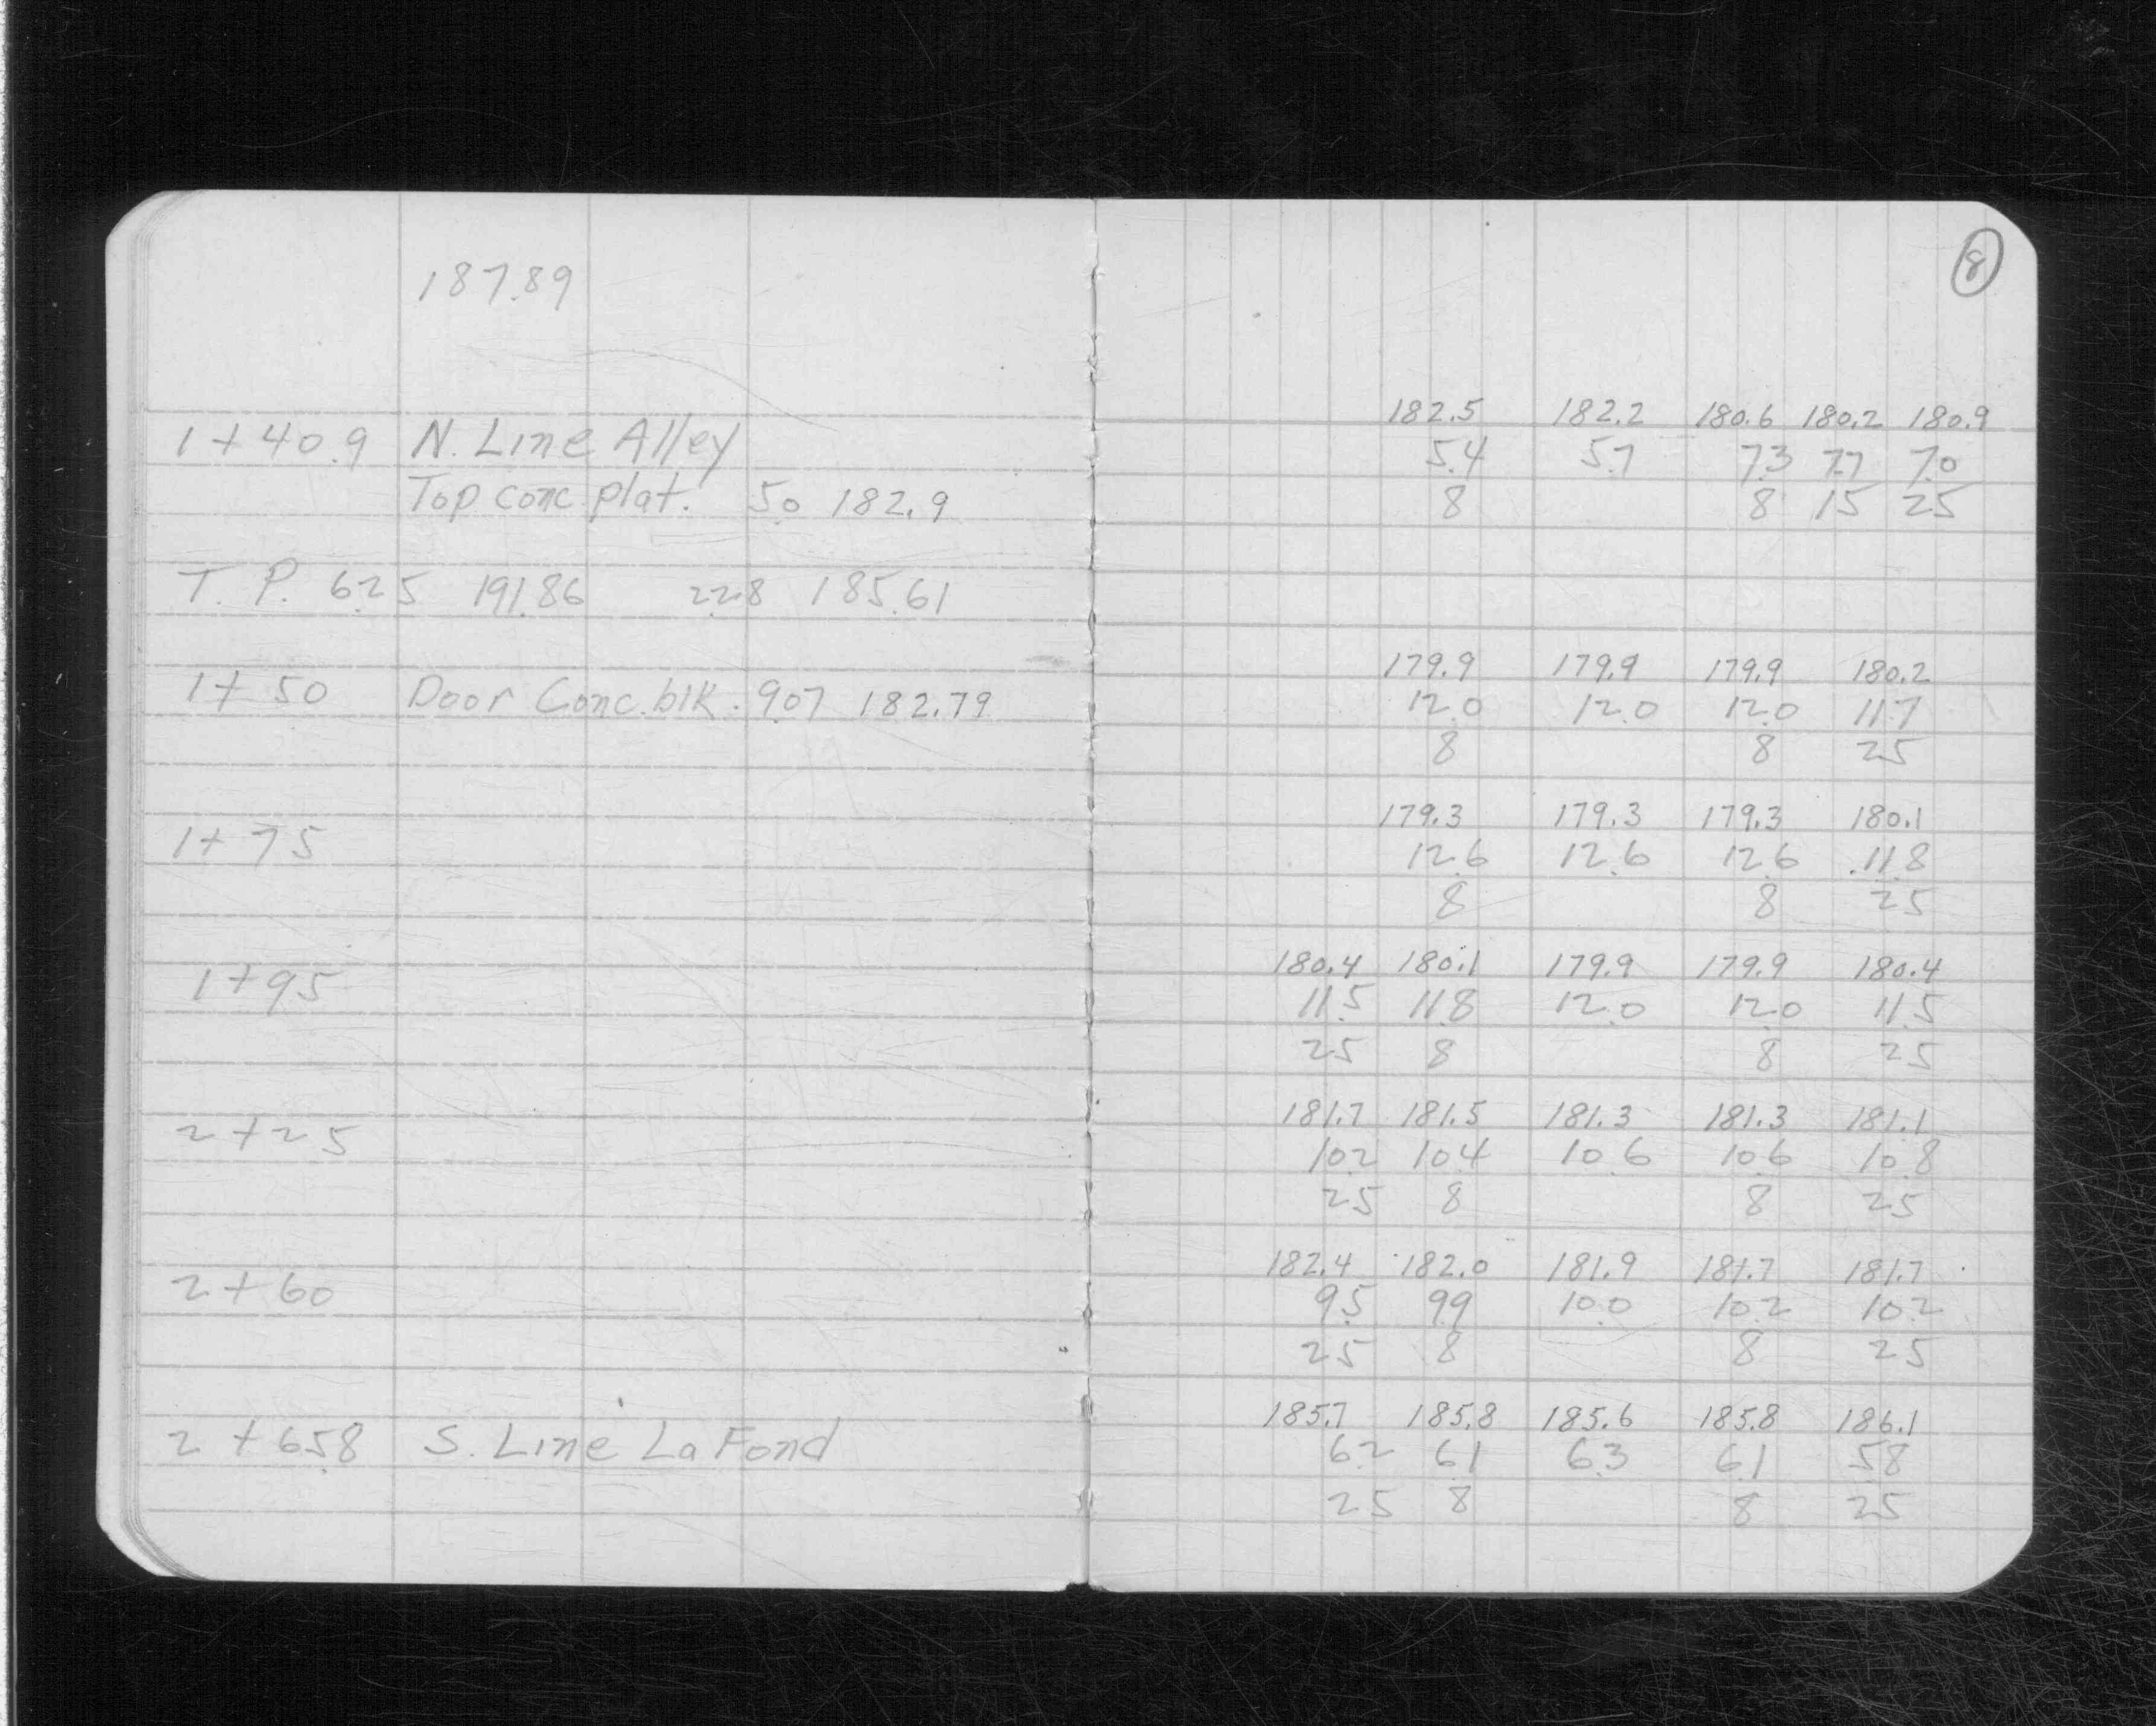 187.89
8
182.5 182.2 180.6 180.2 180.9
1+40.9 N. Line Alley 5.4 5.7 7.3 7.7 7.0
Top conc. plat. 5.0 182.9 8 8 15 25
T. P. 6.25 191.86 2.28 185.61
179.9 179.9 179.9 180.2
1+50 Door Conc. blk. 9.07 182.79 12.0 12.0 12.0 11.7
8 8 25
179.3 179.3 179.3 180.1
1+75 12.6 12.6 12.6 11.8
8 8 25
180.4 180.1 179.9 179.9 180.4
1+95 11.5 11.8 12.0 12.0 11.5
25 8 8 25
181.7 181.5 181.3 181.3 181.1
2+25 10.2 10.4 10.6 10.6 10.8
25 8 8 25
182.4 182.0 181.9 181.7 181.7
2+60 9.5 9.9 10.0 10.2 10.2
25 8 8 25
185.7 185.8 185.6 185.8 186.1
2+65.8 S. Line La Fond 6.2 6.1 6.3 6.1 5.8
25 8 8 25